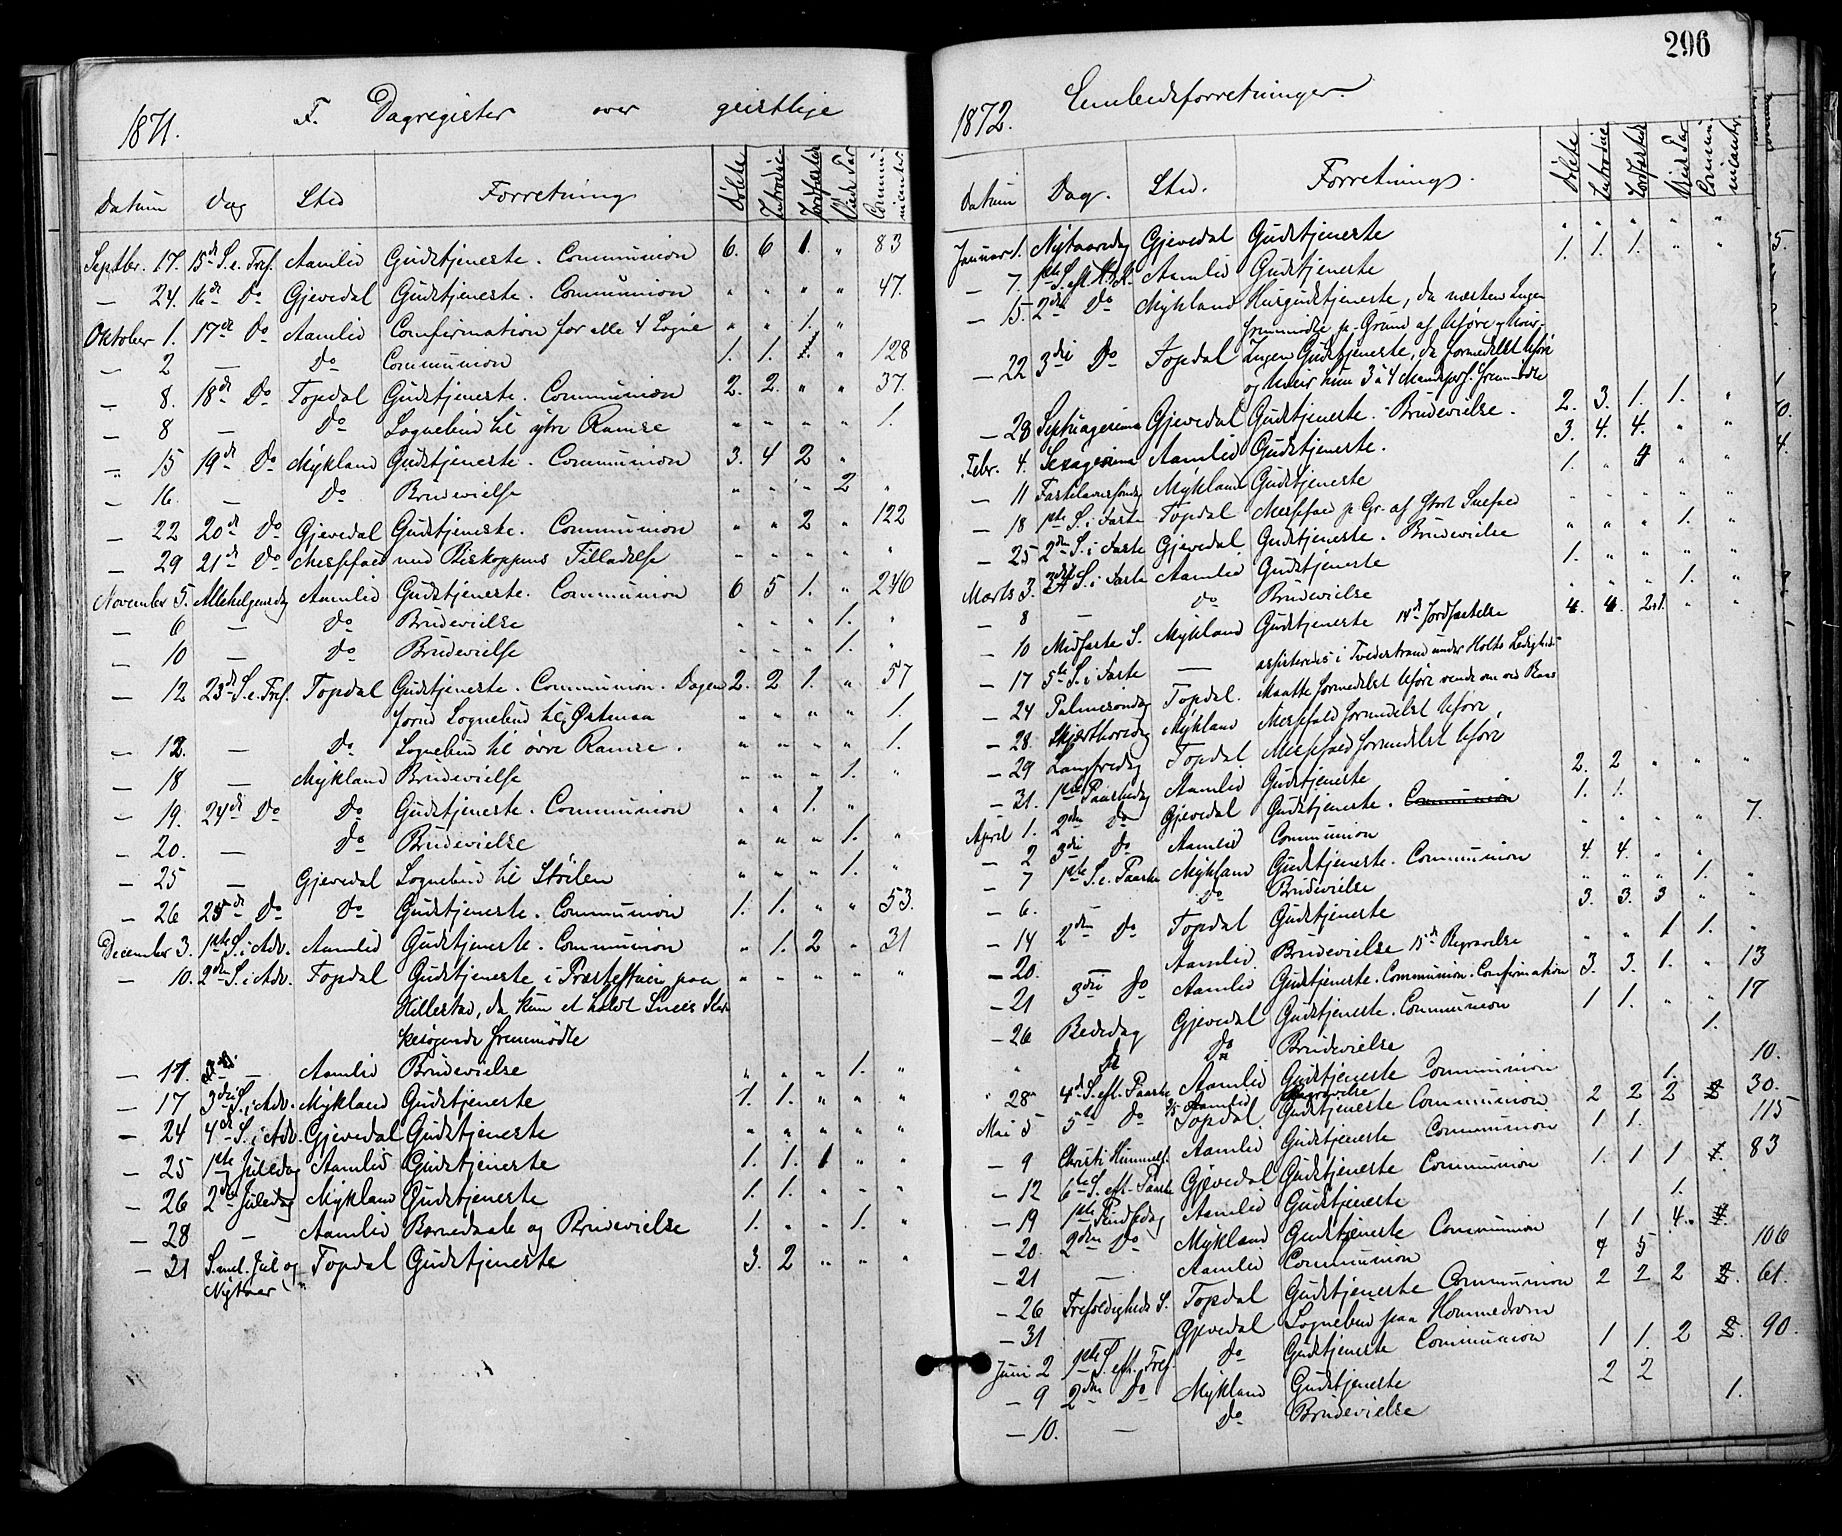 296
1871. F. Dagregister over geistlige
Datum Dag Sted Forretning Døbte Introduc. Jordfæstede Viede Par Communicanter
Septbr. 17. 15de S. e. Tref. Aamlid Gudstjeneste. Communion 6. 6 1. " 83
— 24. 16de Do Gjevedal Gudstjeneste. Communion " " " " 47.
Oktober 1. 17de Do Aamlid Confirmation for alle 4 Sogne " " 1. "
— 2 — Do Communion 1. 1. 1. " 128
— 8. 18de Do Topdal Gudstjeneste. Communion 2. 2. " " 37.
— 8 — Do Sognebud til ytre Ramse " " " " 1.
" 15 19de Do Mykland Gudstjeneste. Communion 3. 4 2 "
— 16. — Do Brudevielse " " " 2 "
— 22 20de Do Gjevedal Gudstjeneste. Communion " " 2 " 122
— 29 21de Do Messefald med Biskoppens Tilladelse " " " " "
November 5. Allehelgensdag Aamlid Gudstjeneste. Communion 6 5 1. " 246
— 6 — Do Brudevielse " " " 1. "
— 10 — Do Brudevielse " " " 1. "
— 12 23de S. e. Tref. Topdal Gudstjeneste. Communion. Dagen 2. 2 1. " 57
forud Sognebud til Østenaa " " " " 1.
— 12. — Do Sognebud til øvre Ramse. " " " " 1.
— 18 — Mykland Brudevielse " " " 1. "
— 19. 24de Do Do Gudstjeneste. Communion " " 1. "
— 20. — Do Brudevielse " " " 1. "
— 25 — Gjevedal Sognebud til Støilen " " " 1. "
— 26 25de Do Do Gudstjeneste. Communion 1. 1. " " 53.
December 3. 1ste S. i Adv. Aamlid Gudstjeneste. Communion " 1. 2 " 31
— 10. 2den S. i Adv. Topdal Gudstjeneste i Præstestuen paa " " " " "
Hillestad, da kun et halvt Snees Kir
kesøgende fremmødte
— 17. — Aamlid Brudevielse " " " 1. "
— 17 3die S. i Adv. Mykland Gudstjeneste 1. 1. " " "
— 24 4de S. i Adv. Gjevedal Gudstjeneste " " " " "
— 25 1ste Juledag Aamlid Gudstjeneste 1. 1. 1 " "
— 26 2den Juledag Mykland Gudstjeneste 1. 1. " " "
— 28 — Aamlid Barnedaab og Brudevielse 1. " " 1. "
— 31 S. mel. Jul og Topdal Gudstjeneste 3. 2 " " "
Nytaar
1872. Embedsforretninger.
Datum Dag. Sted. Forretning. Døbte Introduc. Jordfæstede Viede Par Communicanter
Januar 1. Nytaarsdag Gjevedal Gudstjeneste " " " " "
— 7. 1ste S. eft. H.3.K. Aamlid Gudstjeneste 1. 1. 1. " "
— 15. 2den Do Mykland Husgudstjeneste, da næsten Ingen
fremmødte p. Grund af Uføre og Uveir
— 22 3die Do Topdal Ingen Gudstjeneste, da formedelst Uføre
og Uveir kun 3 à 4 Mandspers. fremmødte
— 28 Septuagesima Gjevedal Gudstjeneste. Brudevielse. 2. 3. 1. 1. "
Febr. 4. Sexagesima Aamlid Gudstjeneste. 3. 4. 4. " "
— 11 Fastelavnssøndag Mykland Gudstjeneste 1. " 4 " "
— 18 1ste S. i Faste Topdal Messefald p. Gr. af stort Snefald " " " " "
— 25 2den S. i Faste Gjevedal Gudstjeneste. Brudevielse " " " 1. "
Marts 3. 3die S. i Faste Aamlid Gudstjeneste 1. " " " "
— 8 — Do Brudevielse " " " 1. "
— 10 Midfaste S. Mykland Gudstjeneste 14de Jordfæstelse 4. 4. 2 " "
— 17 5te S. i Faste — assisterede i Tvedestrand under Holts Ledighed
— 24 Palmesøndag Topdal. Maatte formedelst Uføre vende om ved
— 28. Skjærthorsdag Mykland Messefald formedelst Uføre,
— 29 Langfredag Topdal Messefald formedelst Uføre
— 31. 1ste Paaskedag Aamlid Gudstjeneste 2. 2 " " "
April 1. 2den Do Gjevedal Gudstjeneste. Communion 1. 1.
— 2 3die Do Aamlid Communion " " " " 7.
— 7 1ste S. e. Paaske Mykland Gudstjeneste. Communion 4. 4. " "
— 6. Do Brudevielse " " " 1. "
— 14 2den Do Topdal Gudstjeneste 3. 3. 3 " "
— 20. — Aamlid. Brudevielse 15de Begravelse " " 1 1. "
— 21 3die Do Aamlid Gudstjeneste. Communion. Confirmation 3. 3. 1. " 13
— 26 Bededag Gjevedal Gudstjeneste. Communion 1 1. " " 17
" Do Do Brudevielse 1.
" 28 4de S. eft. Paaske Aamlid Gudstjeneste Communion 10.
Aamlid Begravelse 1.
Mai 5 5te Do Topdal Gudstjeneste Communion 2 2 2 30.
— 9 Christi Himmelf. Aamlid Gudstjeneste Communion 1 1. 115
— 12 6te S. eft. Paaske Gjevedal Gudstjeneste Communion 1. 1 1 83
— 19 1ste Pindsedag Aamlid Gudstjeneste 1.
— 20. 2den Do Mykland Gudstjeneste Communion 1 1 4.
— 21 — Aamlid Communion 4 5 106
— 26 Trefoldigheds S. Topdal Gudstjeneste Communion 2 2 2 61.
— 31 Gjevedal Sognebud paa Hommedrom
Juni 2 1ste S. eft. Tref. Do Gudstjeneste Communion 1 1. 2 90.
— 9 2den Do Mykland Gudstjeneste 2 2
— 10. — Do Brudevielse 1.